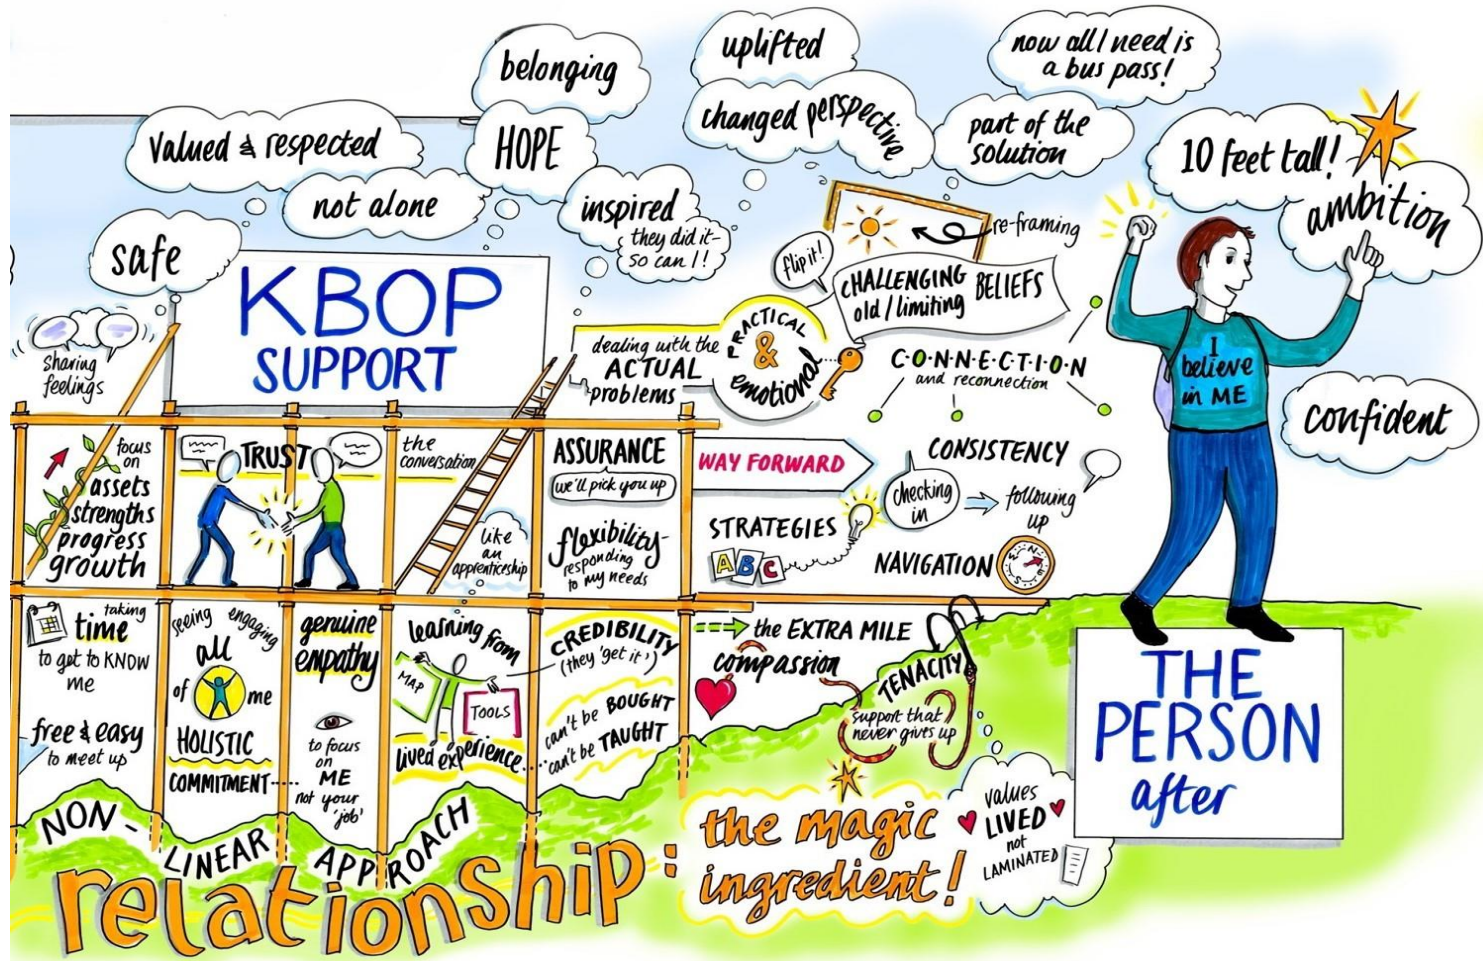 belonging
uplifted
now all I need is
a bus pass!
valued & respected
HOPE
changed perspective
part of the
solution
10 feet tall!
ambition
not alone
inspired
they did it-
so can I!
safe
KBOP
SUPPORT
sharing
feelings
flip it!
re-framing
CHALLENGING
old/limiting
BELIEFS
dealing with the
ACTUAL
problems
PRACTICAL
&
emotional
C·O·N·N·E·C·T·I·O·N
and reconnection
I
believe
in ME
confident
focus
on
assets
strengths
progress
growth
TRUST
the
conversation
like
an
apprenticeship
ASSURANCE
we'll pick you up
flexibility-
responding
to my needs
WAY FORWARD
STRATEGIES
A B C
CONSISTENCY
checking
in
following
up
NAVIGATION
N
E
S
W
taking
time
to get to KNOW
me
free & easy
to meet up
seeing engaging
all
of me
HOLISTIC
COMMITMENT......
genuine
empathy
to focus
on
ME
not your
'job'
learning from
MAP
TOOLS
lived experience.....
CREDIBILITY
(they 'get it')
can't be BOUGHT
can't be TAUGHT
the EXTRA MILE
compassion
TENACITY
support that
never gives up
THE
PERSON
after
NON-
LINEAR
APPROACH
relationship:
the magic
ingredient!
values
LIVED
not
LAMINATED